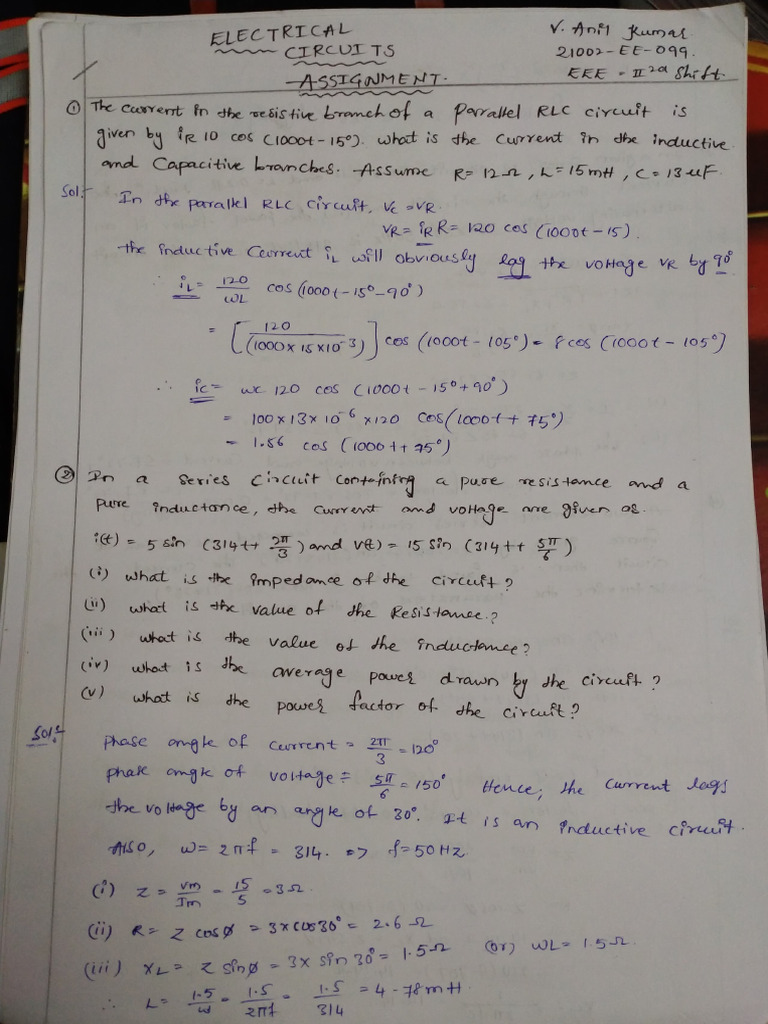 ELECTRICAL
CIRCUITS
ASSIGNMENT.
V. Anil Kumar
21002-EE-099.
EEE - IInd Shift.
① The current in the resistive branch of a parrallel RLC circuit is
given by iR 10 cos (1000t-15°). what is the current in the inductive
and capacitive branches. Assume R=12Ω, L=15mH, C=13μF.
Sol:- In the parallel RLC circuit, vc = vR.
vR = iR R = 120 cos (1000t-15).
the inductive current iL will obviously lag the voltage vR by 90°
∴ iL = 120/ωL cos (1000t-15°-90°)
= [120/(1000×15×10-3)] cos (1000t-105°) = 8 cos (1000t-105°)
∴ ic = wc 120 cos (1000t-15°+90°)
= 100×13×10-6 ×120 cos(1000t+75°)
= 1.56 cos (1000t+75°)
② In a series circuit containing a pure resistance and a
pure inductance, the current and voltage are given as.
i(t) = 5 sin (314t+ 2π/3) and v(t) = 15 sin (314t+ 5π/6)
(i) what is the impedance of the circuit?
(ii) what is the value of the Resistance.?
(iii) what is the value of the inductance?
(iv) what is the average power drawn by the circuit?
(v) what is the power factor of the circuit?
Sol:- phase angle of current = 2π/3 = 120°
phase angle of voltage = 5π/6 = 150° Hence, the current lags
the voltage by an angle of 30°. It is an inductive circuit.
Also, ω = 2πf = 314. => f=50Hz.
(i) Z = Vm/Im = 15/5 = 3Ω.
(ii) R = Z cosφ = 3×cos30° = 2.6Ω
(iii) XL = Z sinφ = 3× sin 30° = 1.5Ω (or) ωL = 1.5Ω.
∴ L = 1.5/ω = 1.5/2πf = 1.5/314 = 4.78mH.